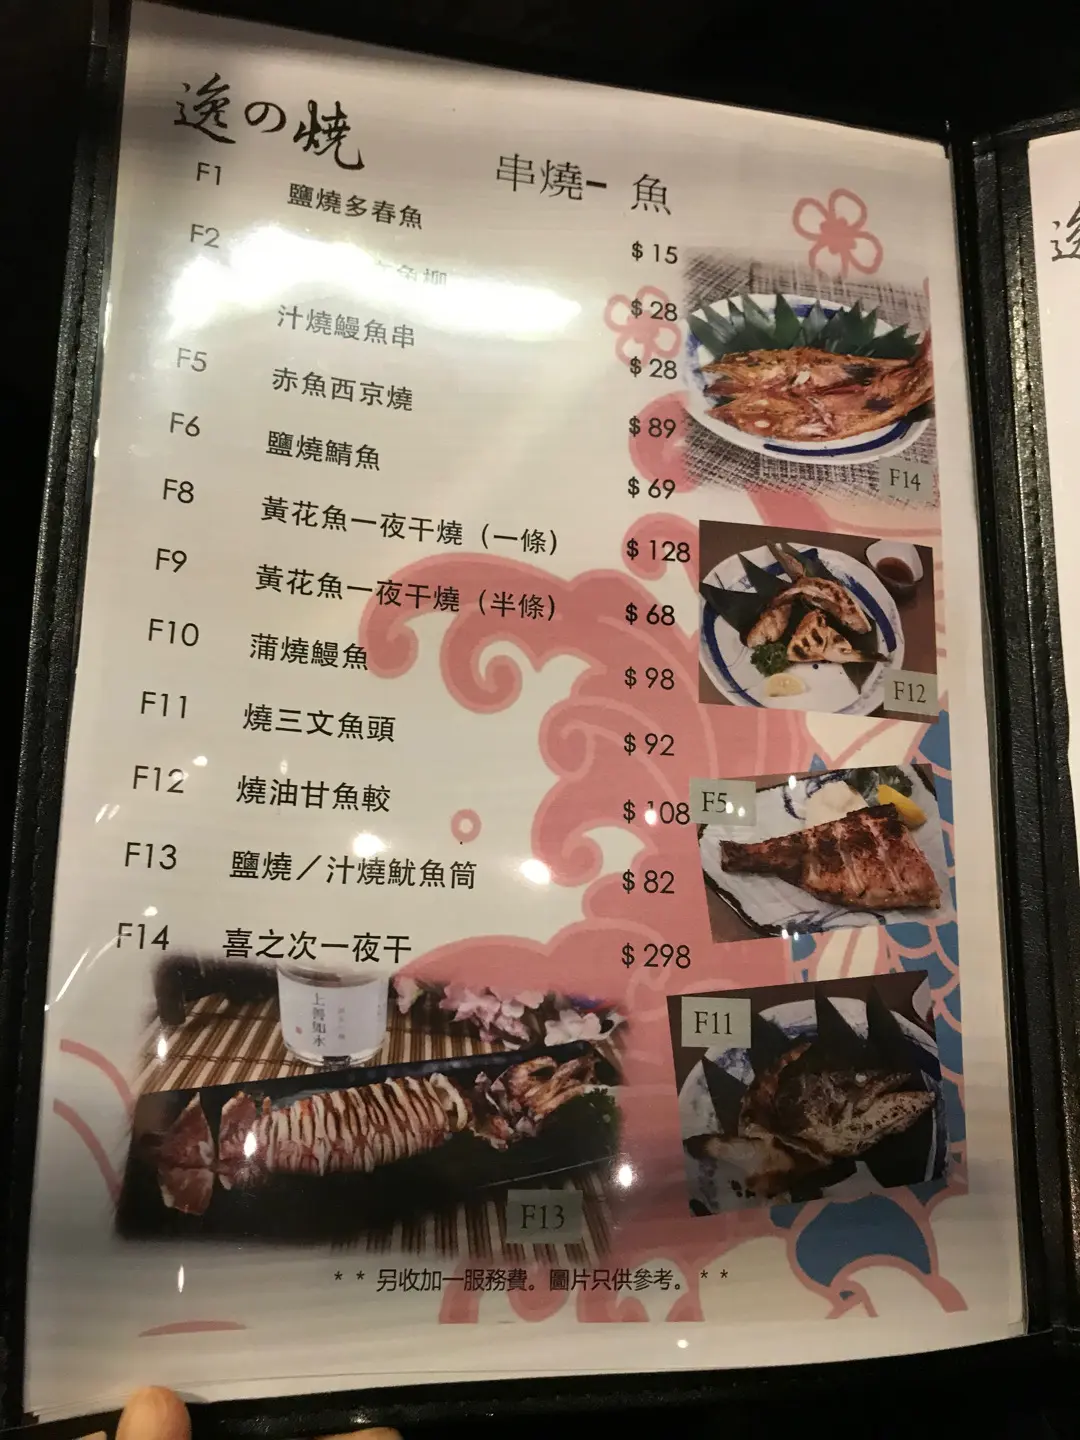 逸の燒
串燒- 魚
F1 鹽燒多春魚 $15
F2 魚柳 $28
汁燒鰻魚串 $28
F5 赤魚西京燒 $89
F6 鹽燒鯖魚 $69
F8 黃花魚一夜干燒（一條） $128
F9 黃花魚一夜干燒（半條） $68
F10 蒲燒鰻魚 $98
F11 燒三文魚頭 $92
F12 燒油甘魚較 $108
F13 鹽燒／汁燒魷魚筒 $82
F14 喜之次一夜干 $298
F14
F12
F5
F11
上善如水
F13
* * 另收加一服務費。圖片只供參考。 * *
逸